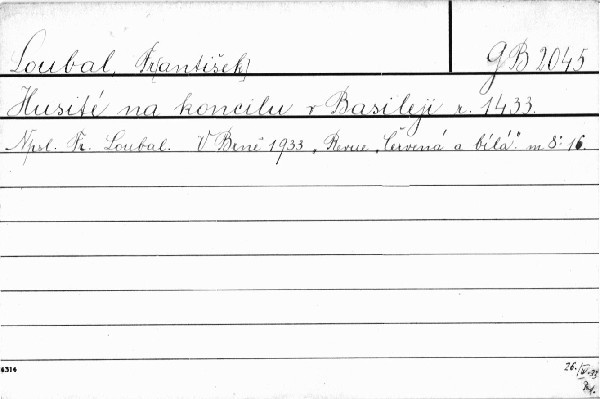 Loubal, Fr[antišek] GB 2045
Husité na koncilu v Basileji r. 1433.
Npsl. Fr. Loubal. V Brně 1933 „Revue „Červená a bílá". m 8° 16.
4314 26.